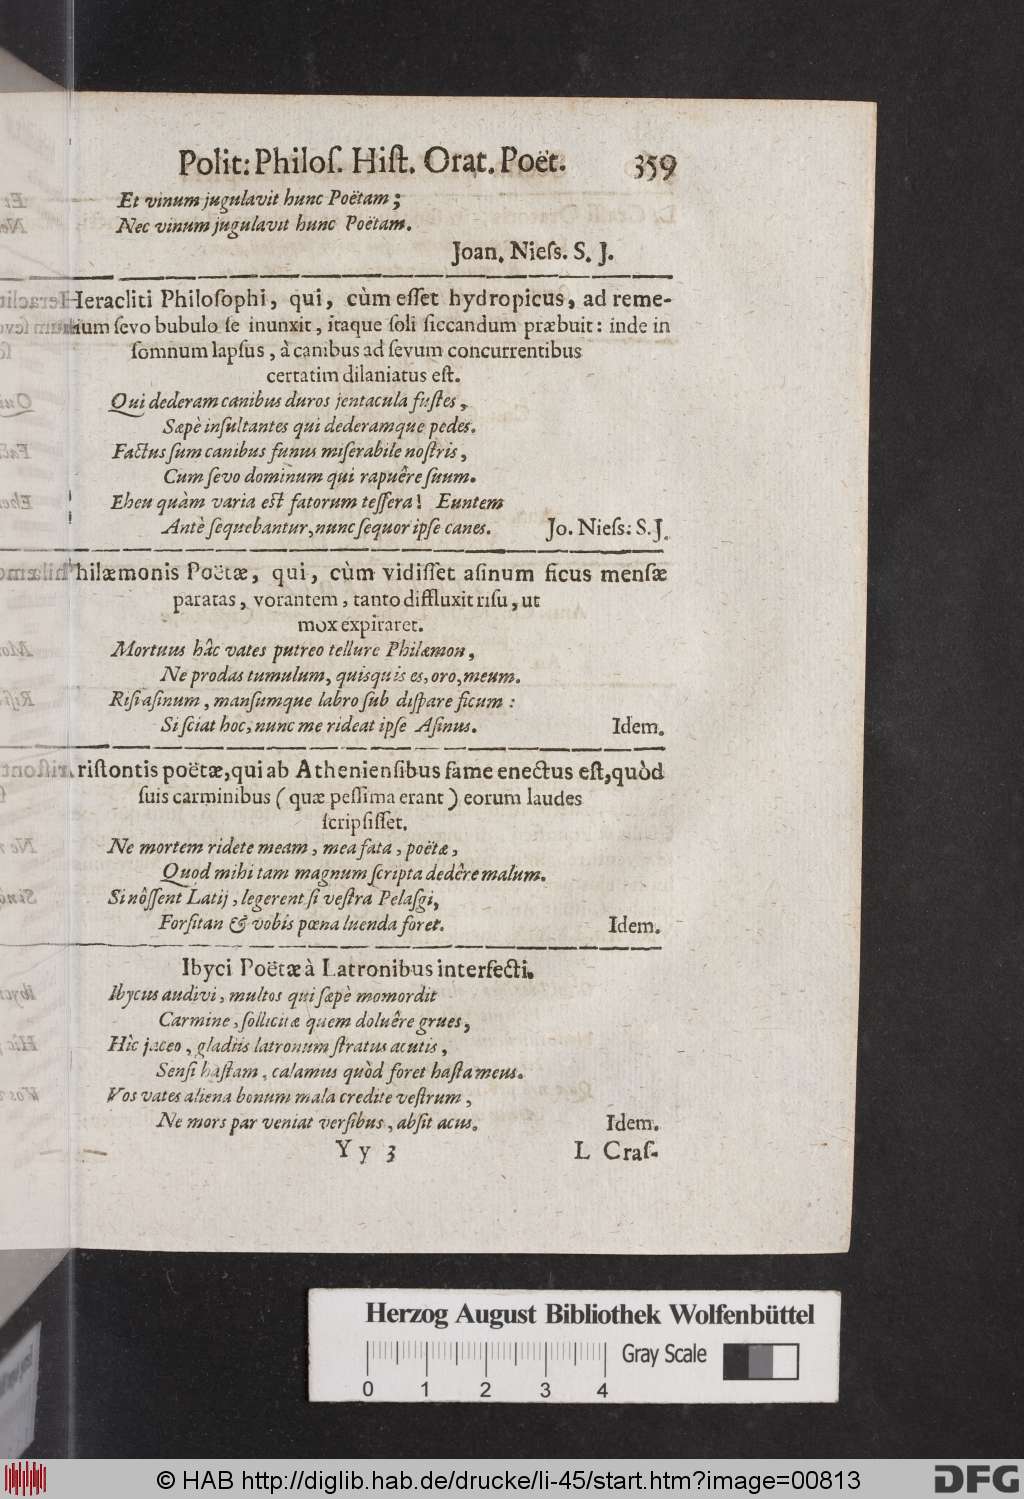 Polit: Philoſ. Hiſt. Orat. Poët. 359
Et vinum jugulavit hunc Poëtam;
Nec vinum jugulavit hunc Poëtam.
Joan. Nieſs. S. J.
Heracliti Philoſophi, qui, cùm eſſet hydropicus, ad reme-
dium ſevo bubulo ſe inunxit, itaque ſoli ſiccandum præbuit: inde in
ſomnum lapſus, à canibus ad ſevum concurrentibus
certatim dilaniatus eſt.
Qui dederam canibus duros jentacula fuſtes,
Sæpè inſultantes qui dederamque pedes.
Factus ſum canibus funus miſerabile noſtris,
Cum ſevo dominum qui rapuêre ſuum.
Eheu quàm varia eſt fatorum teſſera! Euntem
Antè ſequebantur, nunc ſequor ipſe canes. Jo. Nieſs: S. J.
Philæmonis Poëtæ, qui, cùm vidiſſet aſinum ficus menſæ
paratas, vorantem, tanto diffluxit riſu, ut
mox expiraret.
Mortuus hâc vates putreo tellure Philæmon,
Ne prodas tumulum, quisquis es, oro, meum.
Riſi aſinum, manſumque labro ſub diſpare ficum:
Si ſciat hoc, nunc me rideat ipſe Aſinus. Idem.
riſtontis poëtæ, qui ab Athenienſibus fame enectus eſt, quòd
ſuis carminibus (quæ peſſima erant) eorum laudes
ſcripſiſſet.
Ne mortem ridete meam, mea fata, poëtæ,
Quod mihi tam magnum ſcripta dedêre malum.
Si nôſſent Latij, legerent ſi veſtra Pelaſgi,
Forſitan & vobis pœna luenda foret. Idem.
Ibyci Poëtæ à Latronibus interfecti.
Ibycus audivi, multos qui ſæpè momordit
Carmine, ſollicitæ quem doluêre grues,
Hìc jaceo, gladiis latronum ſtratus acutis,
Senſi haſtam, calamus quòd foret haſta meus.
Vos vates aliena bonum mala credite veſtrum,
Ne mors par veniat verſibus, abſit acus. Idem.
Y y 3 L Craſ-
Herzog August Bibliothek Wolfenbüttel
Gray Scale
0 1 2 3 4
© HAB http://diglib.hab.de/drucke/li-45/start.htm?image=00813
DFG